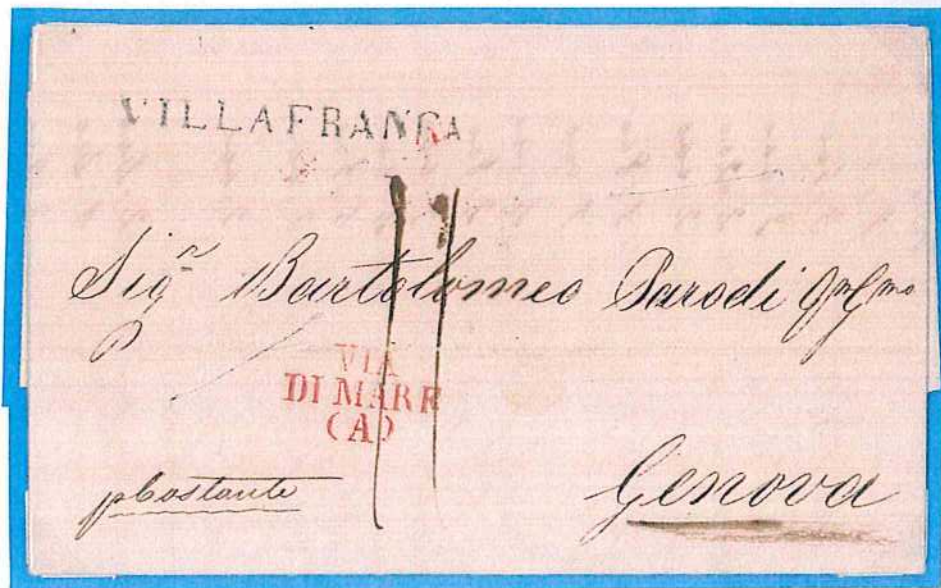 VILLAFRANCA
Sigr Bartolomeo Parodi
VIA
DI MARE
(A)
p Costante
Genova